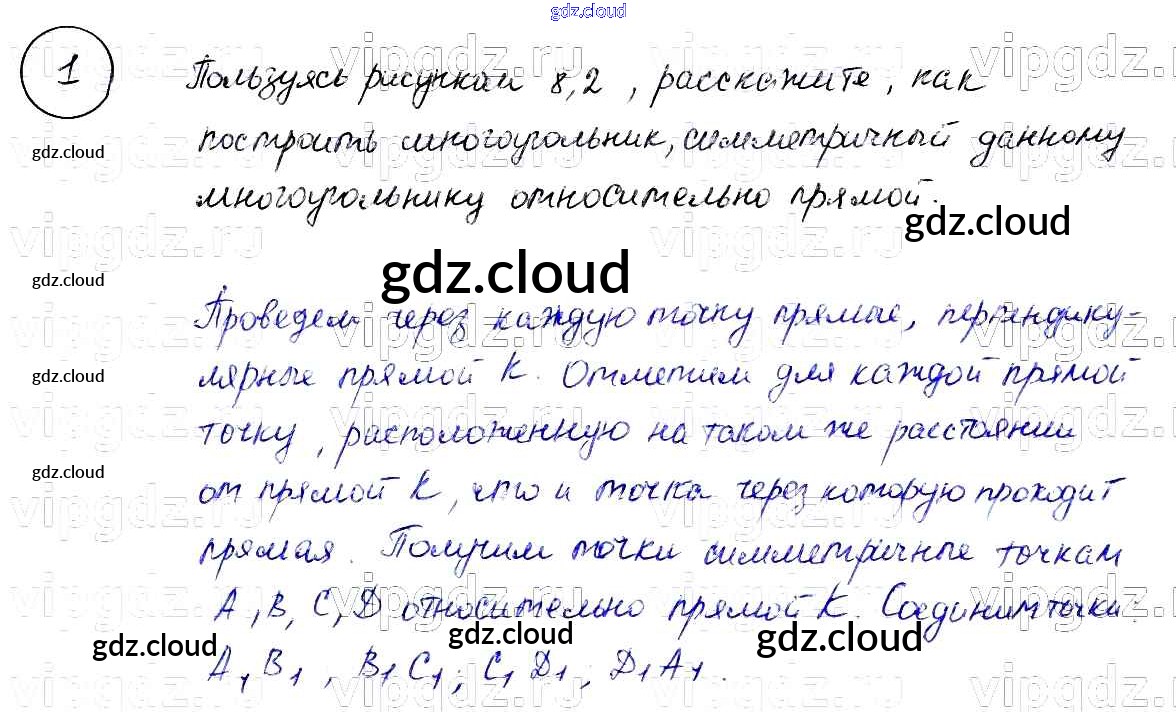 gdz.cloud
1
Пользуясь рисунком 8,2, расскажите, как
gdz.cloud
построить многоугольник, симметричный данному
многоугольнику относительно прямой.
gdz.cloud
gdz.cloud
gdz.cloud
gdz.cloud
Проведем через каждую точку прямые, перпендику-
gdz.cloud
лярные прямой К. Отметим для каждой прямой
точку, расположенную на таком же расстоянии
gdz.cloud
от прямой К, что и точка через которую проходит
прямая. Получим точки симметричные точкам
А, В, С, D относительно прямой К. Соединим точки
gdz.cloud
gdz.cloud
gdz.cloud
А1В1, В1С1, С1D1, D1А1.
vipgdz.ru